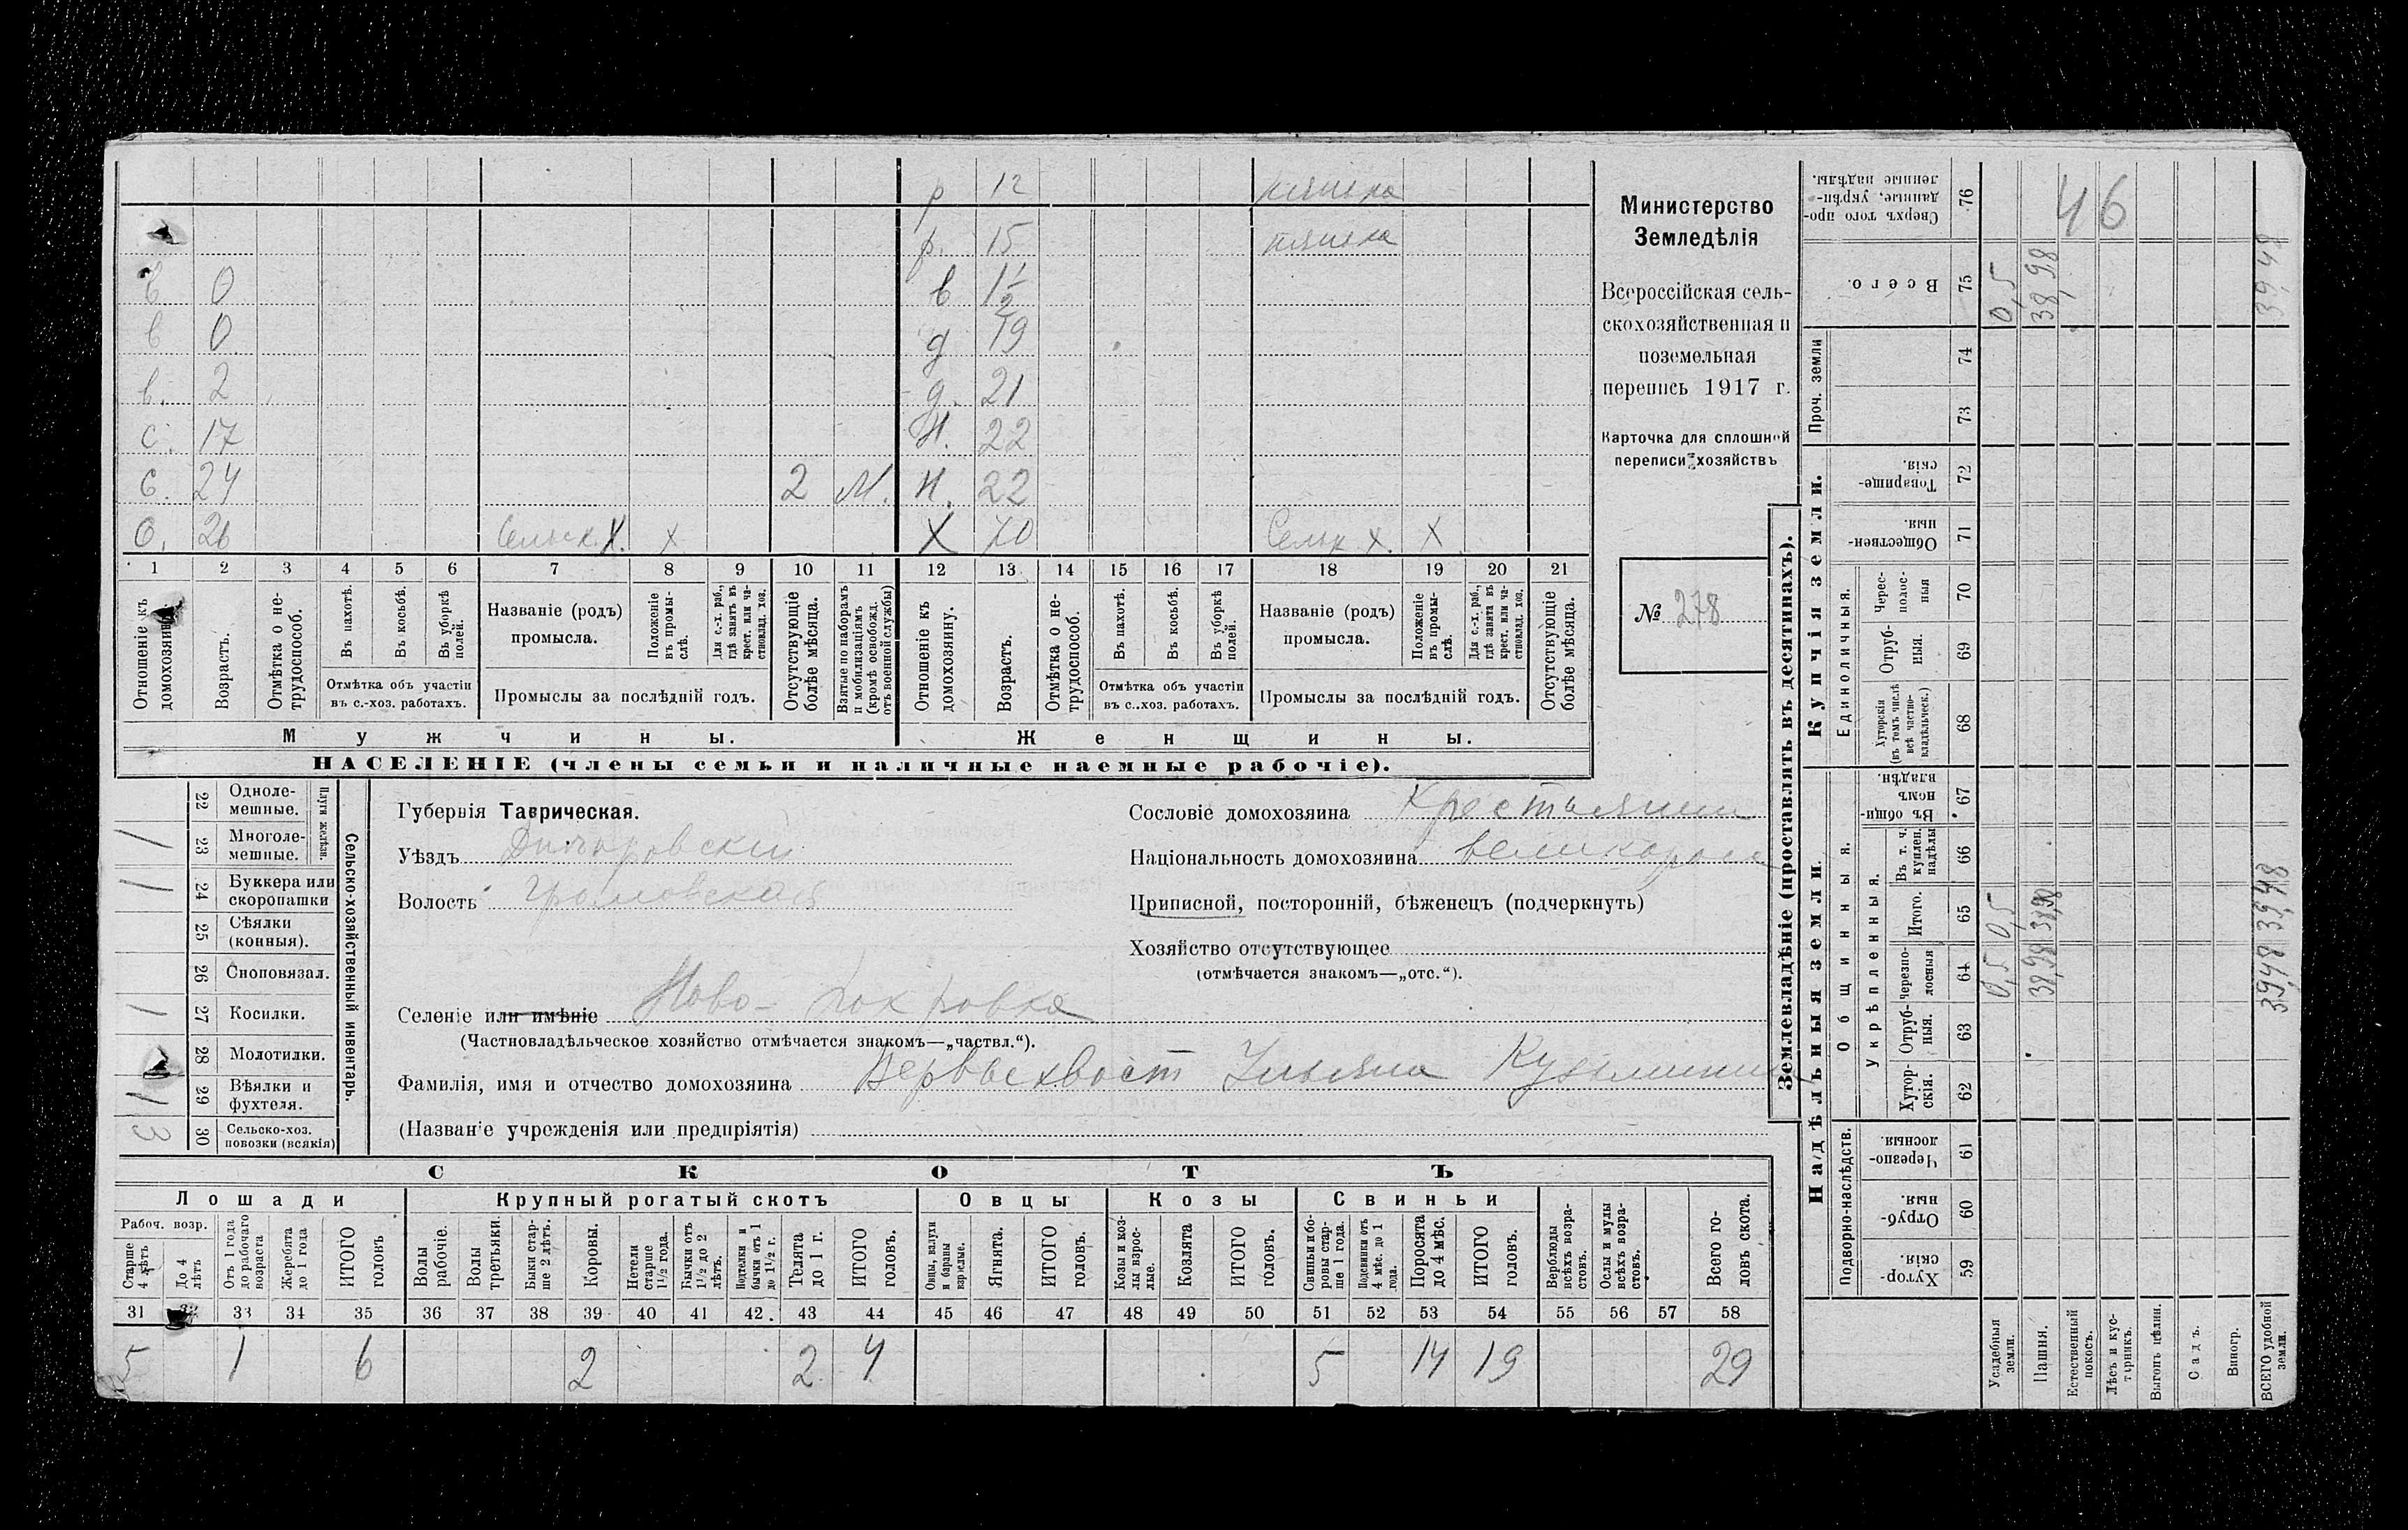 р 12 няшка
р. 15 няшка
в 0 в 1 1/2
в 0 д 19
в. 2 д. 21
с. 17 Н. 22
с. 24 2 М. н. 22
О. 26 Сельск. Х. х Х 70 Сельк Х. Х
1 2 3 4 5 6 7 8 9 10 11 12 13 14 15 16 17 18 19 20 21
Отношеніе къ домохозяину.
Возрастъ.
Отмѣтка о нетрудоспособ.
Въ пахотѣ.
Въ косьбѣ.
Въ уборкѣ полей.
Отмѣтка объ участіи
въ с.-хоз. работахъ.
Названіе (родъ)
промысла.
Положеніе въ промыслѣ.
Для с.-х. раб., гдѣ занятъ въ крест. или частновлад. хоз.
Промыслы за послѣдній годъ.
Отсутствующіе болѣе мѣсяца.
Взятые по наборамъ и мобилизаціямъ (кромѣ освобожд. отъ военной службы)
Отношеніе къ домохозяину.
Возрастъ.
Отмѣтка о нетрудоспособ.
Въ пахотѣ.
Въ косьбѣ.
Въ уборкѣ полей.
Отмѣтка объ участіи
въ с..хоз. работахъ.
Названіе (родъ)
промысла.
Положеніе въ промыслѣ.
Для с.-х. раб., гдѣ занята въ крест. или частновлад. хоз.
Промыслы за послѣдній годъ.
Отсутствующіе болѣе мѣсяца.
Мужчины. Женщины.
НАСЕЛЕНІЕ (члены семьи и наличные наемные рабочіе).
Министерство
Земледѣлія
Всероссійская сель-
скохозяйственная и
поземельная
перепись 1917 г.
Карточка для сплошной
переписи хозяйствъ
№ 278
Сельско-хозяйственный инвентарь.
Плуги желѣзн.
22 Однолемешные.
1 23 Многолемешные.
1 24 Буккера или скоропашки
25 Сѣялки (конныя).
26 Сноповязал.
1 27 Косилки.
28 Молотилки.
1 29 Вѣялки и фухтеля.
3 30 Сельско-хоз. повозки (всякія)
Губернія Таврическая.
Уѣздъ Днѣпровскій
Волость Громовская
Селеніе или имѣніе Ново-Покровка
(Частновладѣльческое хозяйство отмѣчается знакомъ—„частвл.“).
Фамилія, имя и отчество домохозяина Вервыехвост Ульяна Кузьминич
(Названіе учрежденія или предпріятія)
Сословіе домохозяина Крестьянин
Національность домохозяина великоросс
Приписной, посторонній, бѣженецъ (подчеркнуть)
Хозяйство отсутствующее
(отмѣчается знакомъ—„отс.“).
СКОТЪ
Лошади Крупный рогатый скотъ Овцы Козы Свиньи
Рабоч. возр.
Старше 4 лѣтъ
До 4 лѣтъ
Отъ 1 года до рабочаго возраста
Жеребята до 1 года
ИТОГО головъ
Волы рабочіе.
Волы третьяки.
Быки старше 2 лѣтъ.
Коровы.
Нетели старше 1 1/2 года.
Бычки отъ 1 1/2 до 2 лѣтъ.
Подтелки и бычки отъ 1 до 1 1/2 г.
Телята до 1 г.
ИТОГО головъ.
Овцы, валухи и бараны взрослые.
Ягнята.
ИТОГО головъ.
Козы и козлы взрослые.
Козлята
ИТОГО головъ.
Свиньи и боровы старше 1 года.
Подсвинки отъ 4 мѣс. до 1 года.
Поросята до 4 мѣс.
ИТОГО головъ.
Верблюды всѣхъ возрастовъ.
Ослы и мулы всѣхъ возрастовъ.
Всего головъ скота.
31 32 33 34 35 36 37 38 39 40 41 42. 43 44 45 46 47 48 49 50 51 52 53 54 55 56 57 58
5 1 6 2 2 4 5 14 19 29
Землевладѣніе (проставлять въ десятинахъ).
Надѣльныя земли. Купчія земли.
Подворно-наслѣдств.
Общинныя.
Укрѣпленныя.
Единоличныя.
Проч. земли
Хуторскія. 59
Отрубныя. 60
Черезполосныя. 61
Хуторскія. 62
Отрубныя. 63
Черезполосныя 64
Итого. 65
Въ т. ч. куплен. надѣлы 66
Въ общинномъ владѣн. 67
Хуторскія (въ томъ числѣ всѣ частновладѣльческ.) 68
Отрубныя. 69
Чересполосныя 70
Общественныя. 71
Товарищескія. 72
73
74
Всего. 75
Сверхъ того проданные, укрѣпленные надѣлы. 76
Усадебныя земли. 0,5 0,5 0,5
Пашня. 38,98 38,98 38,98
Естественный покосъ.
Лѣсъ и кустарникъ.
Выгонъ цѣлин.
Садъ.
Виногр.
ВСЕГО удобной земли. 39,48 39,48 39,48
46